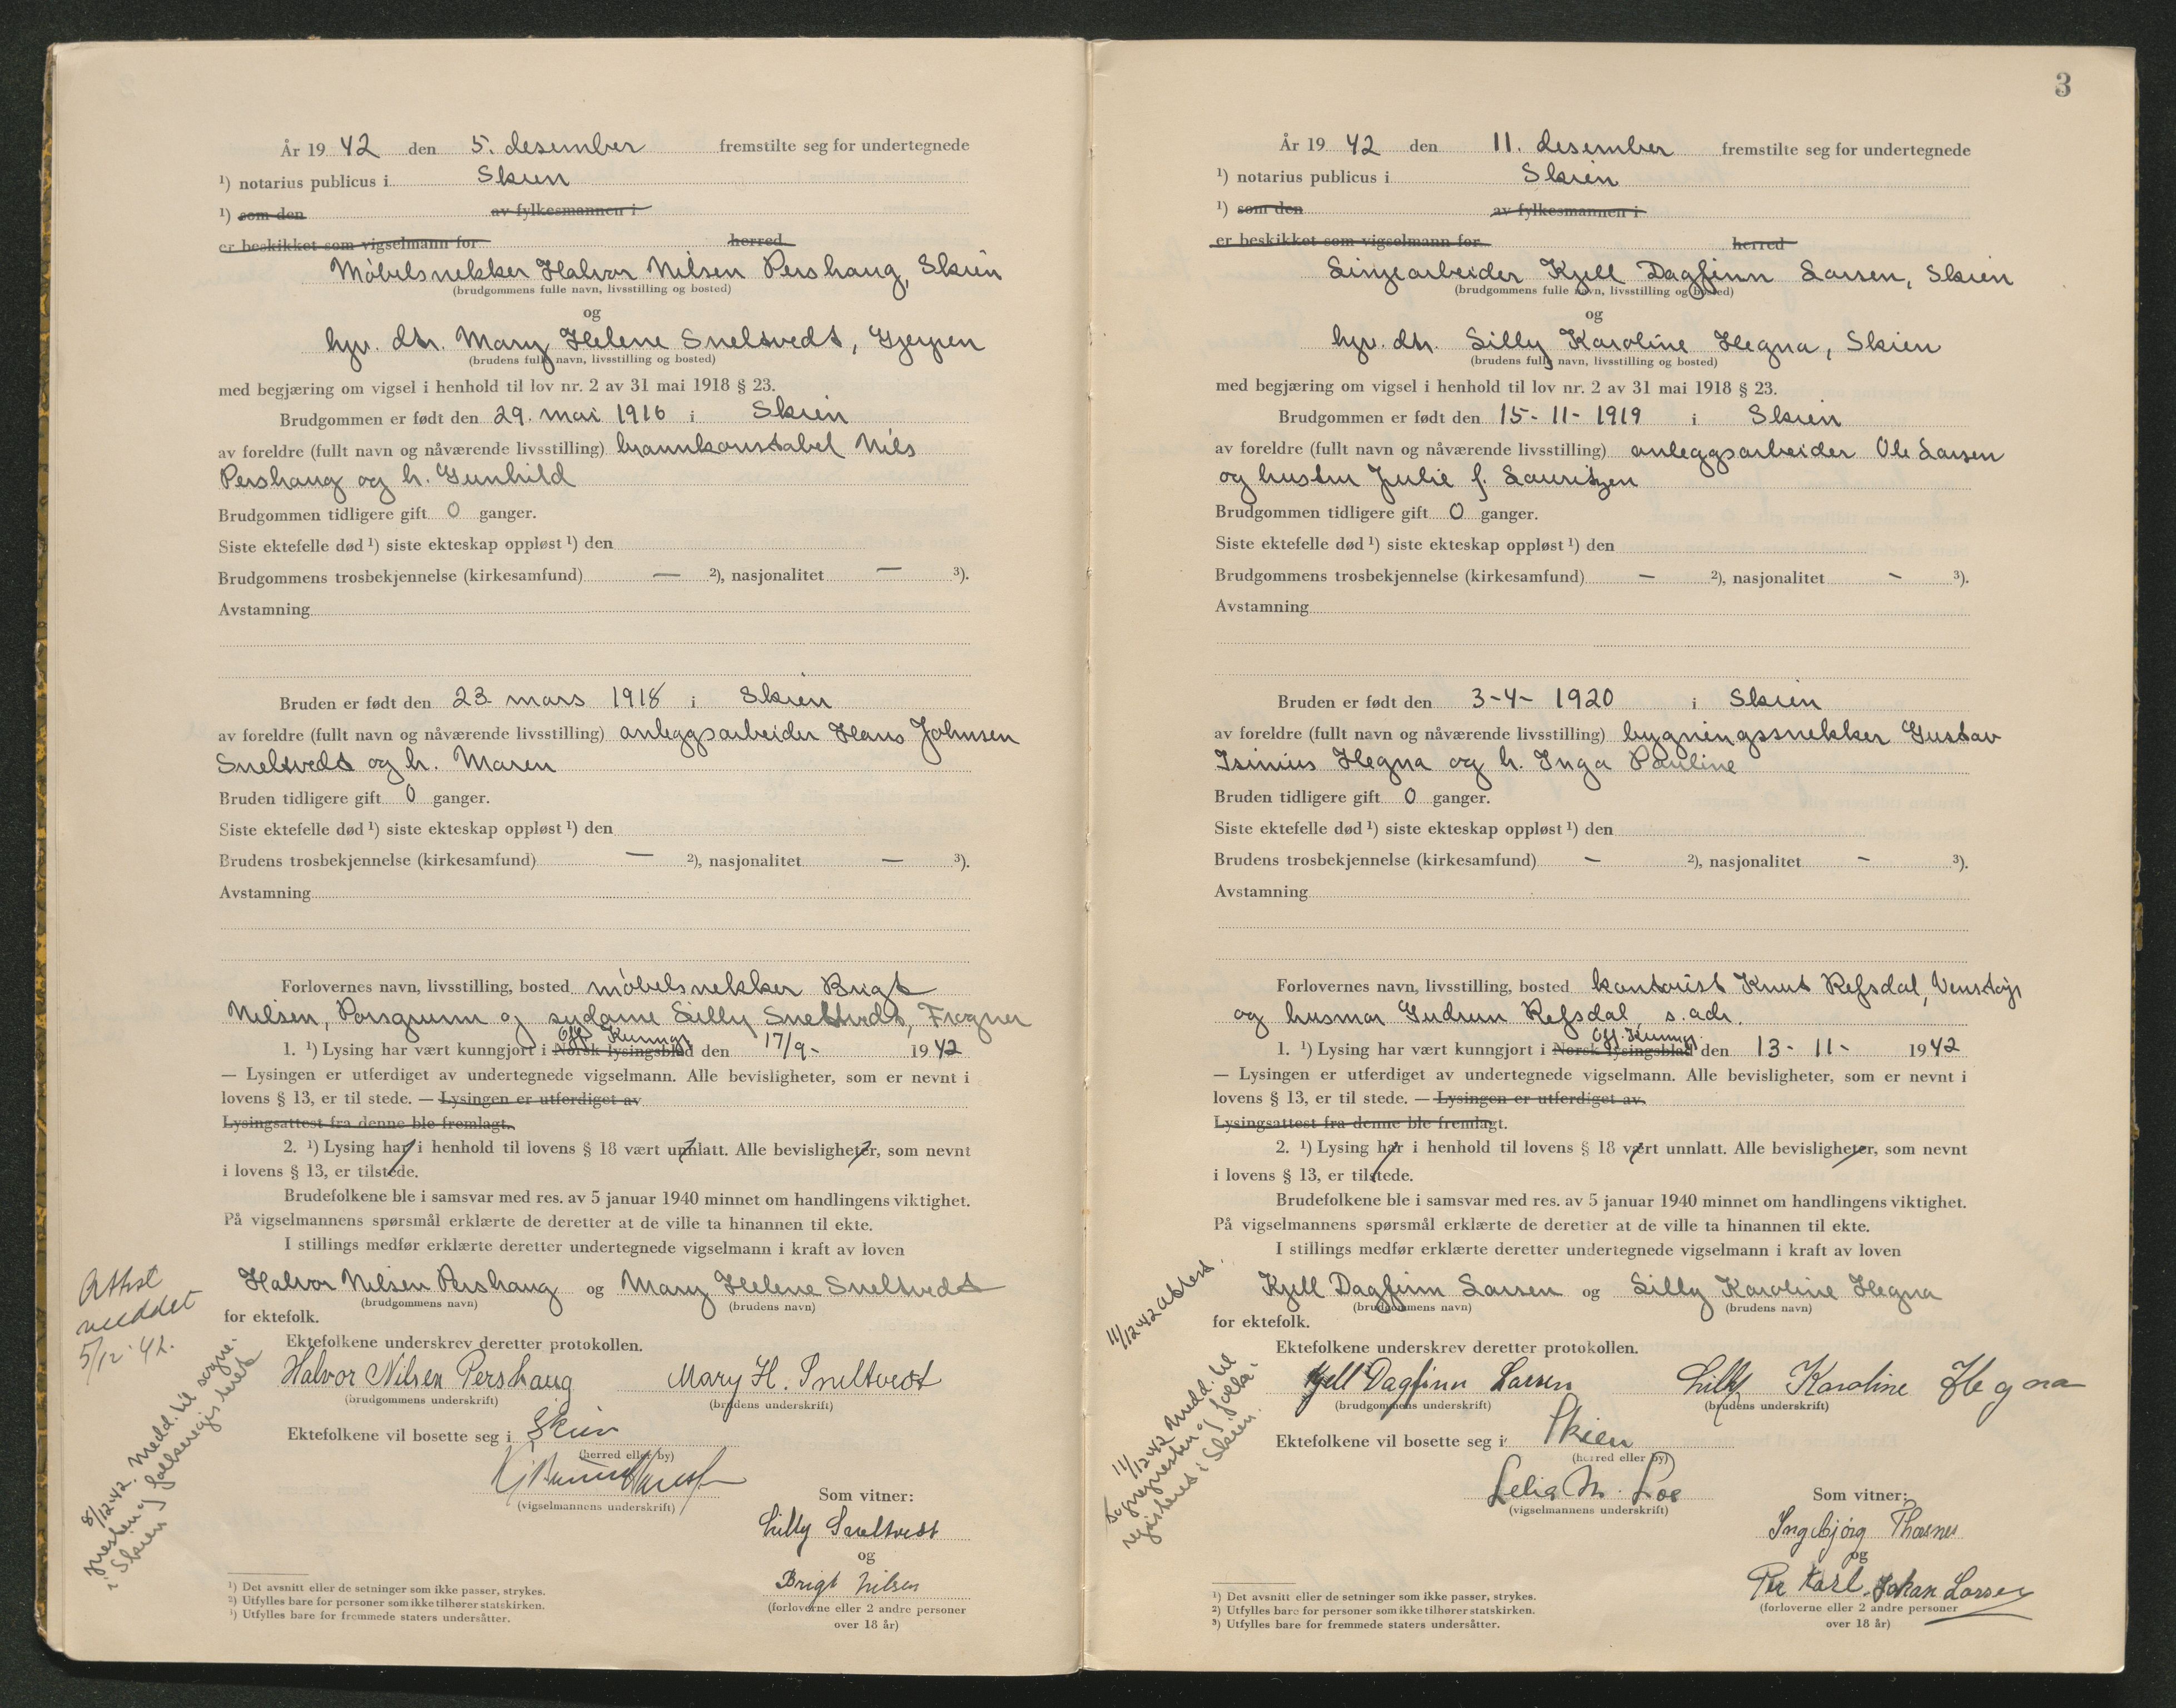 År 19 42 den 5. desember fremstilte seg for undertegnede
¹) notarius publicus i Skien
¹) som den av fylkesmannen i
er beskikket som vigselmann for herred
Møbelsnekker Halvor Nilsen Pershaug, Skien
(brudgommens fulle navn, livsstilling og bosted)
og
hjv. dtr. Mary Helene Sneltvedt, Gjerpen
(brudens fulle navn, livsstilling og bosted)
med begjæring om vigsel i henhold til lov nr. 2 av 31 mai 1918 § 23.
Brudgommen er født den 29. mai 1916 i Skien
av foreldre (fullt navn og nåværende livsstilling) brannkonstabel Nils
Pershaug og h. Gunhild
Brudgommen tidligere gift 0 ganger.
Siste ektefelle død ¹) siste ekteskap oppløst ¹) den
Brudgommens trosbekjennelse (kirkesamfund) — ²), nasjonalitet — ³).
Avstamning
Bruden er født den 23 mars 1918 i Skien
av foreldre (fullt navn og nåværende livsstilling) anleggsarbeider Hans Johnsen
Sneltvedt og h. Maren
Bruden tidligere gift 0 ganger.
Siste ektefelle død ¹) siste ekteskap oppløst ¹) den
Brudens trosbekjennelse (kirkesamfund) — ²), nasjonalitet — ³).
Avstamning
Forlovernes navn, livsstilling, bosted møbelsnekker Brigt
Nilsen, Porsgrunn og sydame Lilly Sneltvedt, Frogner
Off. Kunngj.
1. ¹) Lysing har vært kunngjort i Norsk lysingsblad den 17/9- 19 42
— Lysingen er utferdiget av undertegnede vigselmann. Alle bevisligheter, som er nevnt i
lovens § 13, er til stede. — Lysingen er utferdiget av
Lysingsattest fra denne ble fremlagt.
2. ¹) Lysing har i henhold til lovens § 18 vært unnlatt. Alle bevisligheter, som nevnt
i lovens § 13, er tilstede.
Brudefolkene ble i samsvar med res. av 5 januar 1940 minnet om handlingens viktighet.
På vigselmannens spørsmål erklærte de deretter at de ville ta hinannen til ekte.
I stillings medfør erklærte deretter undertegnede vigselmann i kraft av loven
Halvor Nilsen Pershaug og Mary Helene Sneltvedt
(brudgommens navn) (brudens navn)
for ektefolk.
Ektefolkene underskrev deretter protokollen.
Halvor Nilsen Pershaug Mary H. Sneltvedt
(brudgommens underskrift) (brudens underskrift)
Ektefolkene vil bosette seg i Skien
(herred eller by)
(vigselmannens underskrift)
Som vitner:
Lilly Sneltvedt
og
Brigt Nilsen
(forloverne eller 2 andre personer
over 18 år)
Attest
meddelt
5/12 '42.
8/12 42. Medd. til sogne-
presten og folkeregisteret
i Skien
¹) Det avsnitt eller de setninger som ikke passer, strykes.
²) Utfylles bare for personer som ikke tilhører statskirken.
³) Utfylles bare for fremmede staters undersåtter.
3
År 19 42 den 11. desember fremstilte seg for undertegnede
¹) notarius publicus i Skien
¹) som den av fylkesmannen i
er beskikket som vigselmann for herred
Linjearbeider Kjell Dagfinn Larsen, Skien
(brudgommens fulle navn, livsstilling og bosted)
og
hjv. dtr. Lilly Karoline Hegna, Skien
(brudens fulle navn, livsstilling og bosted)
med begjæring om vigsel i henhold til lov nr. 2 av 31 mai 1918 § 23.
Brudgommen er født den 15-11-1919 i Skien
av foreldre (fullt navn og nåværende livsstilling) anleggsarbeider Ole Larsen
og hustru Julie f. Lauritzen
Brudgommen tidligere gift 0 ganger.
Siste ektefelle død ¹) siste ekteskap oppløst ¹) den
Brudgommens trosbekjennelse (kirkesamfund) — ²), nasjonalitet — ³).
Avstamning
Bruden er født den 3-4-1920 i Skien
av foreldre (fullt navn og nåværende livsstilling) bygningssnekker Gustav
Isinius Hegna og h. Inga Pauline
Bruden tidligere gift 0 ganger.
Siste ektefelle død ¹) siste ekteskap oppløst ¹) den
Brudens trosbekjennelse (kirkesamfund) — ²), nasjonalitet — ³).
Avstamning
Forlovernes navn, livsstilling, bosted kontorist Knut Refsdal, Venstøp
og husmor Gudrun Refsdal, s. adr.
Off. Kunngj.
1. ¹) Lysing har vært kunngjort i Norsk lysingsblad den 13-11- 19 42
— Lysingen er utferdiget av undertegnede vigselmann. Alle bevisligheter, som er nevnt i
lovens § 13, er til stede. — Lysingen er utferdiget av
Lysingsattest fra denne ble fremlagt.
2. ¹) Lysing har i henhold til lovens § 18 vært unnlatt. Alle bevisligheter, som nevnt
i lovens § 13, er tilstede.
Brudefolkene ble i samsvar med res. av 5 januar 1940 minnet om handlingens viktighet.
På vigselmannens spørsmål erklærte de deretter at de ville ta hinannen til ekte.
I stillings medfør erklærte deretter undertegnede vigselmann i kraft av loven
Kjell Dagfinn Larsen og Lilly Karoline Hegna
(brudgommens navn) (brudens navn)
for ektefolk.
Ektefolkene underskrev deretter protokollen.
Kjell Dagfinn Larsen Lilly Karoline Hegna
(brudgommens underskrift) (brudens underskrift)
Ektefolkene vil bosette seg i Skien
(herred eller by)
Lelia M. Loe
(vigselmannens underskrift)
Som vitner:
Ingebjørg Thornes
og
Per Karl Johan Larsen
(forloverne eller 2 andre personer
over 18 år)
11/12 42 Attest.
11/12 42 Medd. til
sognepresten og folke-
registeret i Skien.
¹) Det avsnitt eller de setninger som ikke passer, strykes.
²) Utfylles bare for personer som ikke tilhører statskirken.
³) Utfylles bare for fremmede staters undersåtter.